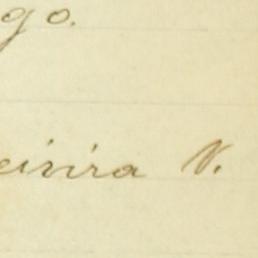 go.
eivira V.